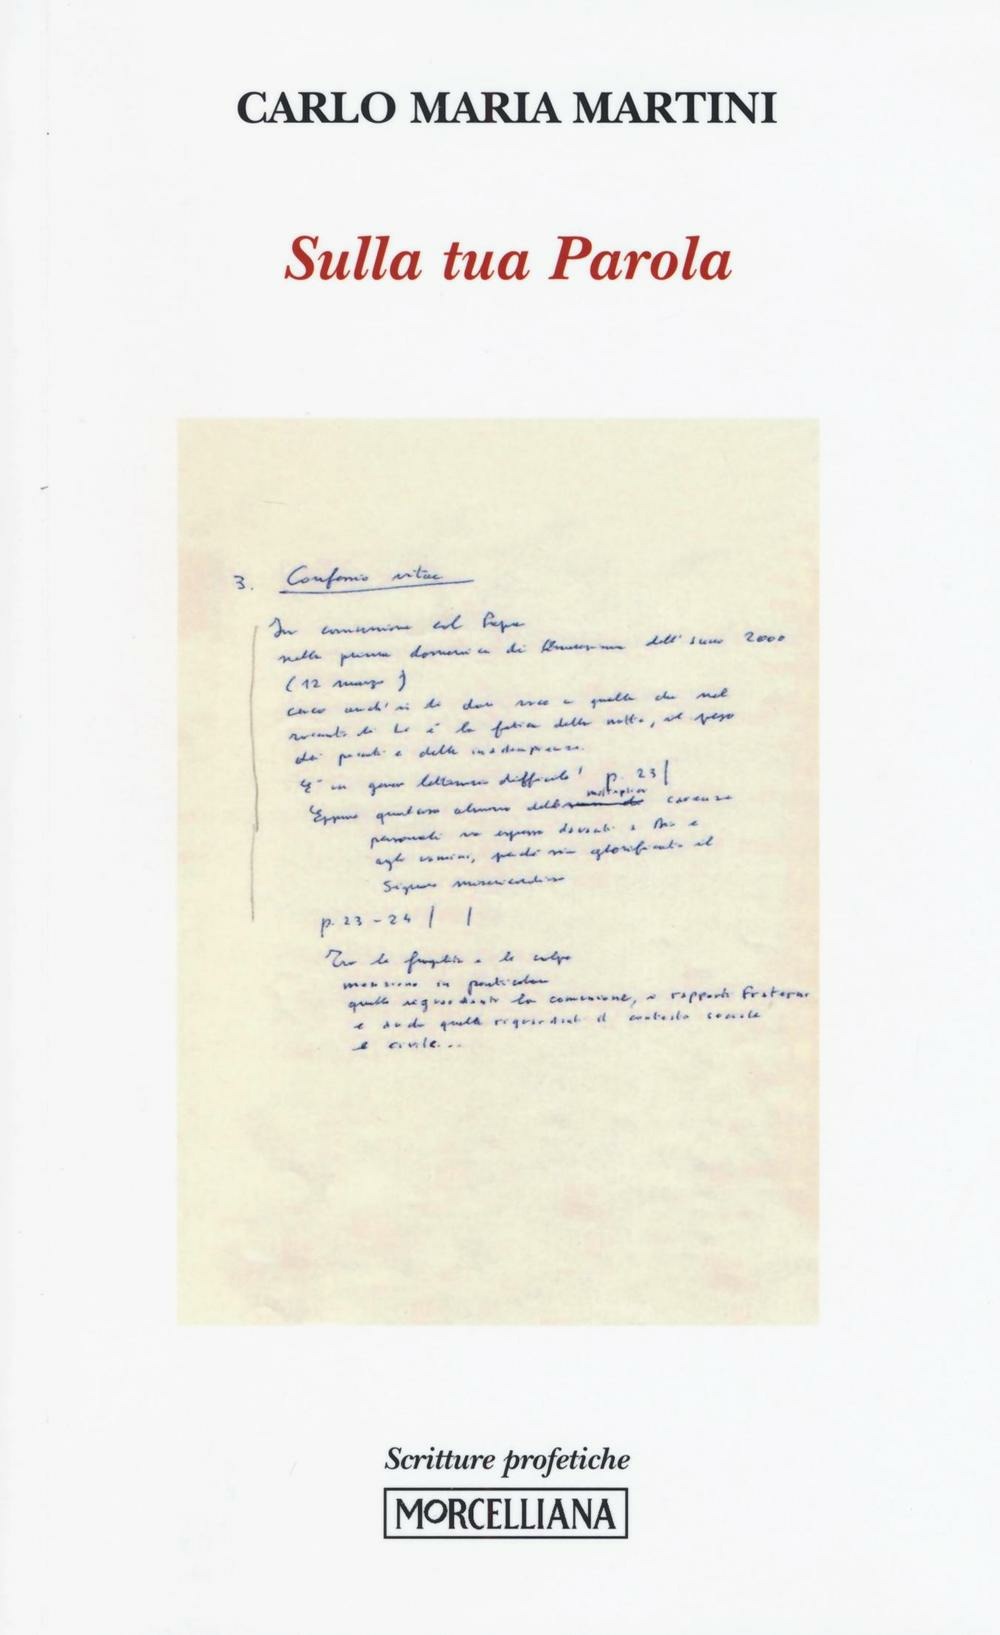 CARLO MARIA MARTINI
Sulla tua Parola
3. Confessio vitae
In comunione col Papa
nella prima domenica di Quaresima dell'anno 2000
(12 marzo)
cerco anch'io di dar voce a quello che nel
di me è la fatica della notte, il peso
dei peccati e delle inadempienze.
E' un genere letterario difficile! p. 23
Eppure qualcosa almeno delle molteplici carenze
personali va espresso davanti a Dio e
agli uomini, perché sia glorificato il
Signore misericordioso
p. 23 - 24
Tra le fragilità e le colpe
menziono in particolare
quelle riguardanti la comunione, i rapporti fraterni
e anche quelle riguardanti il contesto sociale
e civile...
Scritture profetiche
MORCELLIANA